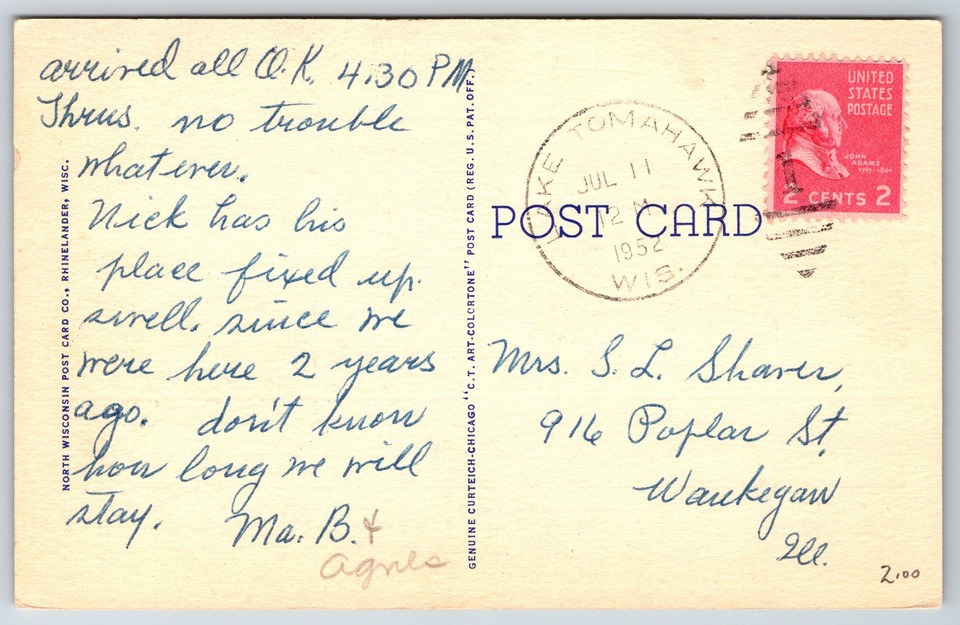 arrived all O.K. 4:30 PM
Thrus. no trouble
whatever.
Nick has his
place fixed up
swell. since we
were here 2 years
ago. don't know
how long we will
stay. Ma. B. &
Agnes
NORTH WISCONSIN POST CARD CO., RHINELANDER, WISC.
GENUINE CURTEICH-CHICAGO "C.T. ART-COLORTONE" POST CARD (REG. U.S. PAT. OFF.)
LAKE TOMAHAWK
JUL 11
12 M
1952
WIS.
UNITED
STATES
POSTAGE
JOHN
ADAMS
1797-1801
2 CENTS 2
POST CARD
Mrs. S. L. Shaver,
916 Poplar St,
Waukegan
Ill.
2.00